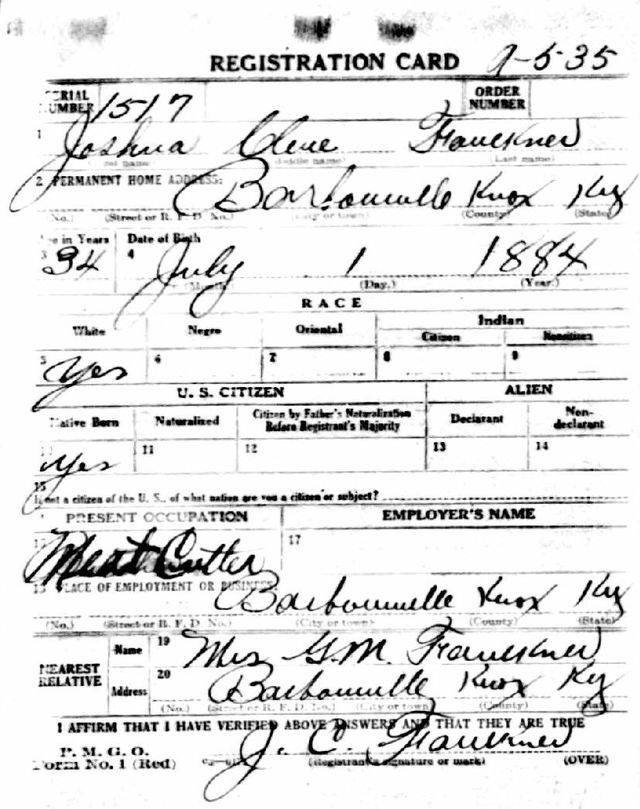 REGISTRATION CARD 9-5-35
SERIAL NUMBER 1517 ORDER NUMBER
1 Joshua Cleve Faulkner
(First name) (Middle name) (Last name)
2 PERMANENT HOME ADDRESS:
Barbourville Knox Ky
(No.) (Street or R. F. D. No.) (City or town) (County) (State)
Age in Years Date of Birth
3 34 4 July 1 1884
(Month.) (Day.) (Year.)
RACE
White Negro Oriental Indian
Citizen Noncitizen
5 Yes 6 7 8 9
U. S. CITIZEN ALIEN
Native Born Naturalized Citizen by Father's Naturalization Before Registrant's Majority Declarant Non-declarant
10 Yes 11 12 13 14
15
If not a citizen of the U. S., of what nation are you a citizen or subject?
PRESENT OCCUPATION EMPLOYER'S NAME
Meat Cutter 17
18 PLACE OF EMPLOYMENT OR BUSINESS:
Barbourville Knox Ky
(No.) (Street or R. F. D. No.) (City or town) (County) (State)
NEAREST RELATIVE
Name 19 Mrs G. M. Faulkner
Address 20 Barbourville Knox Ky
(No.) (Street or R. F. D. No.) (City or town) (County) (State)
I AFFIRM THAT I HAVE VERIFIED ABOVE ANSWERS AND THAT THEY ARE TRUE
J. C. Faulkner
P. M. G. O.
Form No. 1 (Red) (Registrant's signature or mark) (OVER)